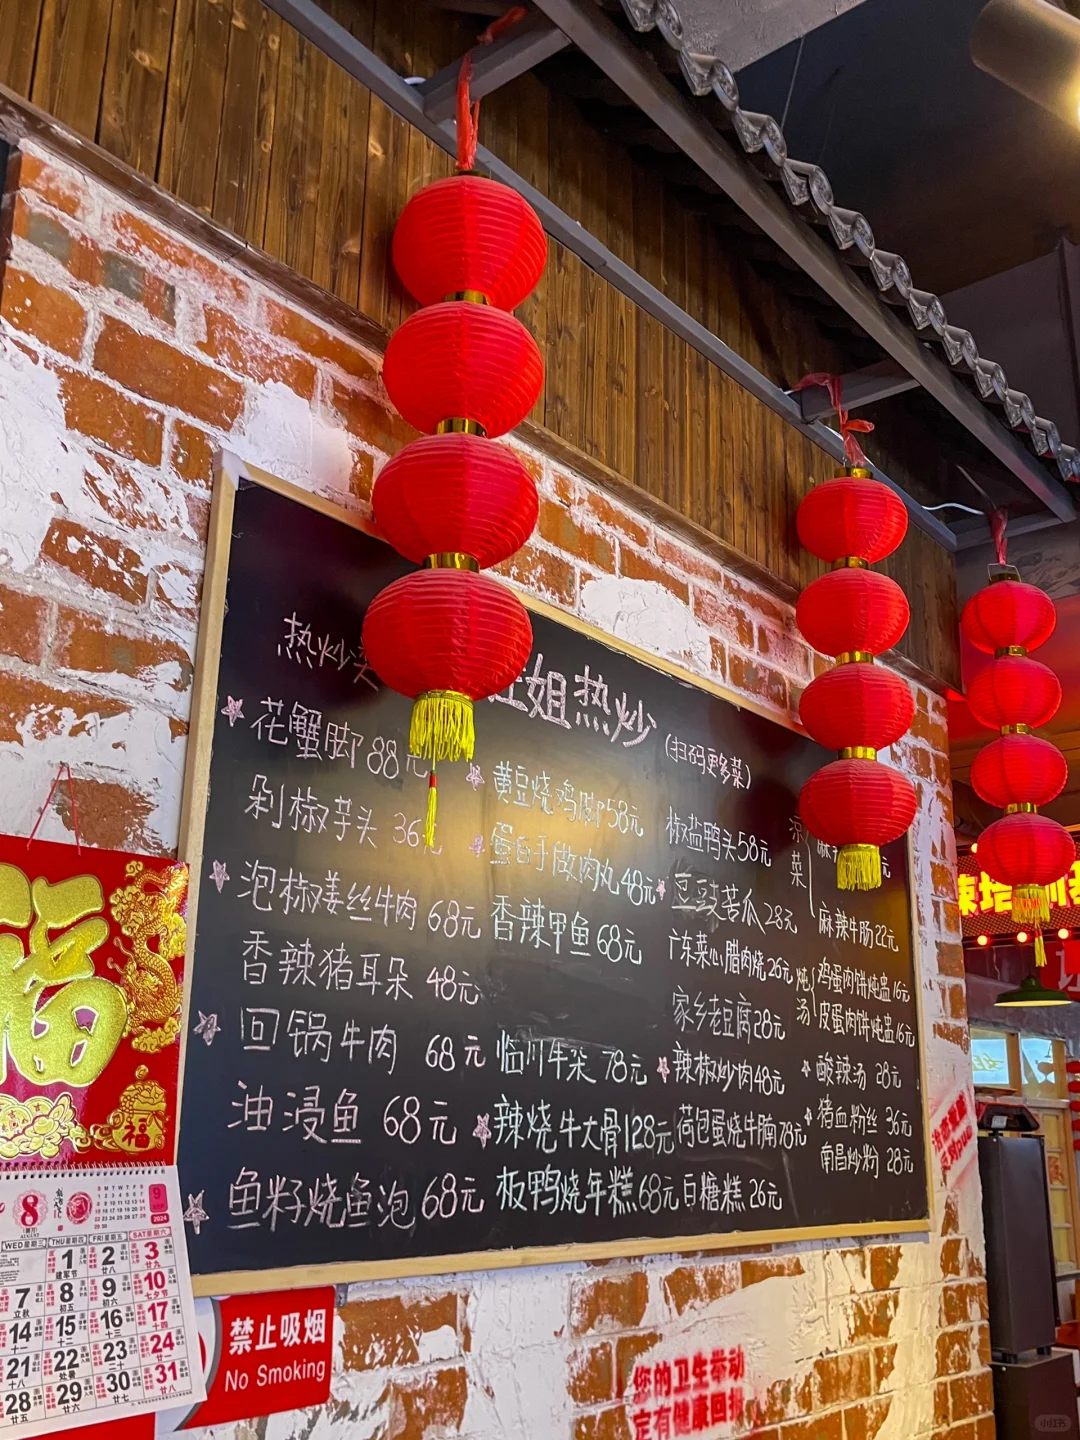 热炒
姐热炒
(扫码更多菜)
花蟹脚 88元
剁椒芋头 36元
泡椒姜丝牛肉 68元
香辣猪耳朵 48元
回锅牛肉 68元
油浸鱼 68元
鱼籽烧鱼泡 68元
黄豆烧鸡脚 58元
蛋白手做肉丸 48元
香辣甲鱼 68元
临川牛杂 78元
辣烧牛大骨 128元
板鸭烧年糕 68元
椒盐鸭头 58元
豆豉苦瓜 28元
广东菜心腊肉烧 26元
家乡老豆腐 28元
辣椒炒肉 48元
荷包蛋烧牛腩 78元
白糖糕 26元
凉菜
麻辣牛肠 22元
炖汤
鸡蛋肉饼炖盅 16元
皮蛋肉饼炖盅 16元
酸辣汤 28元
猪血粉丝 36元
南昌炒粉 28元
福
福
8
AUGUST
9
2024
WED 星期三 THU 星期四 FRI 星期五 SAT 星期六
1 建军节 2 廿八 3 廿九
7 立秋 8 初五 9 初六 10 七夕节
14 十一 15 十二 16 十三 17 十四
21 十八 22 处暑 23 二十 24 廿一
28 廿五 29 廿六 30 廿七 31 廿八
禁止吸烟
No Smoking
您的卫生举动
定有健康回报
小红书